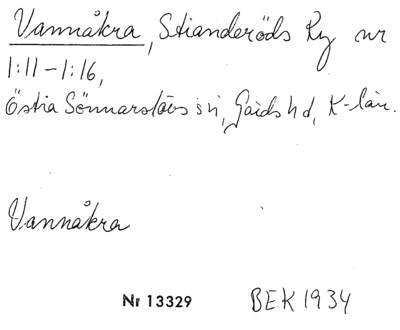 Vannåkra, Stianderöds By nr
1:11-1:16,
Östra Sönnarslövs sn, Gärds hd, K-län.
Vannåkra
Nr 13329 BEK 1934